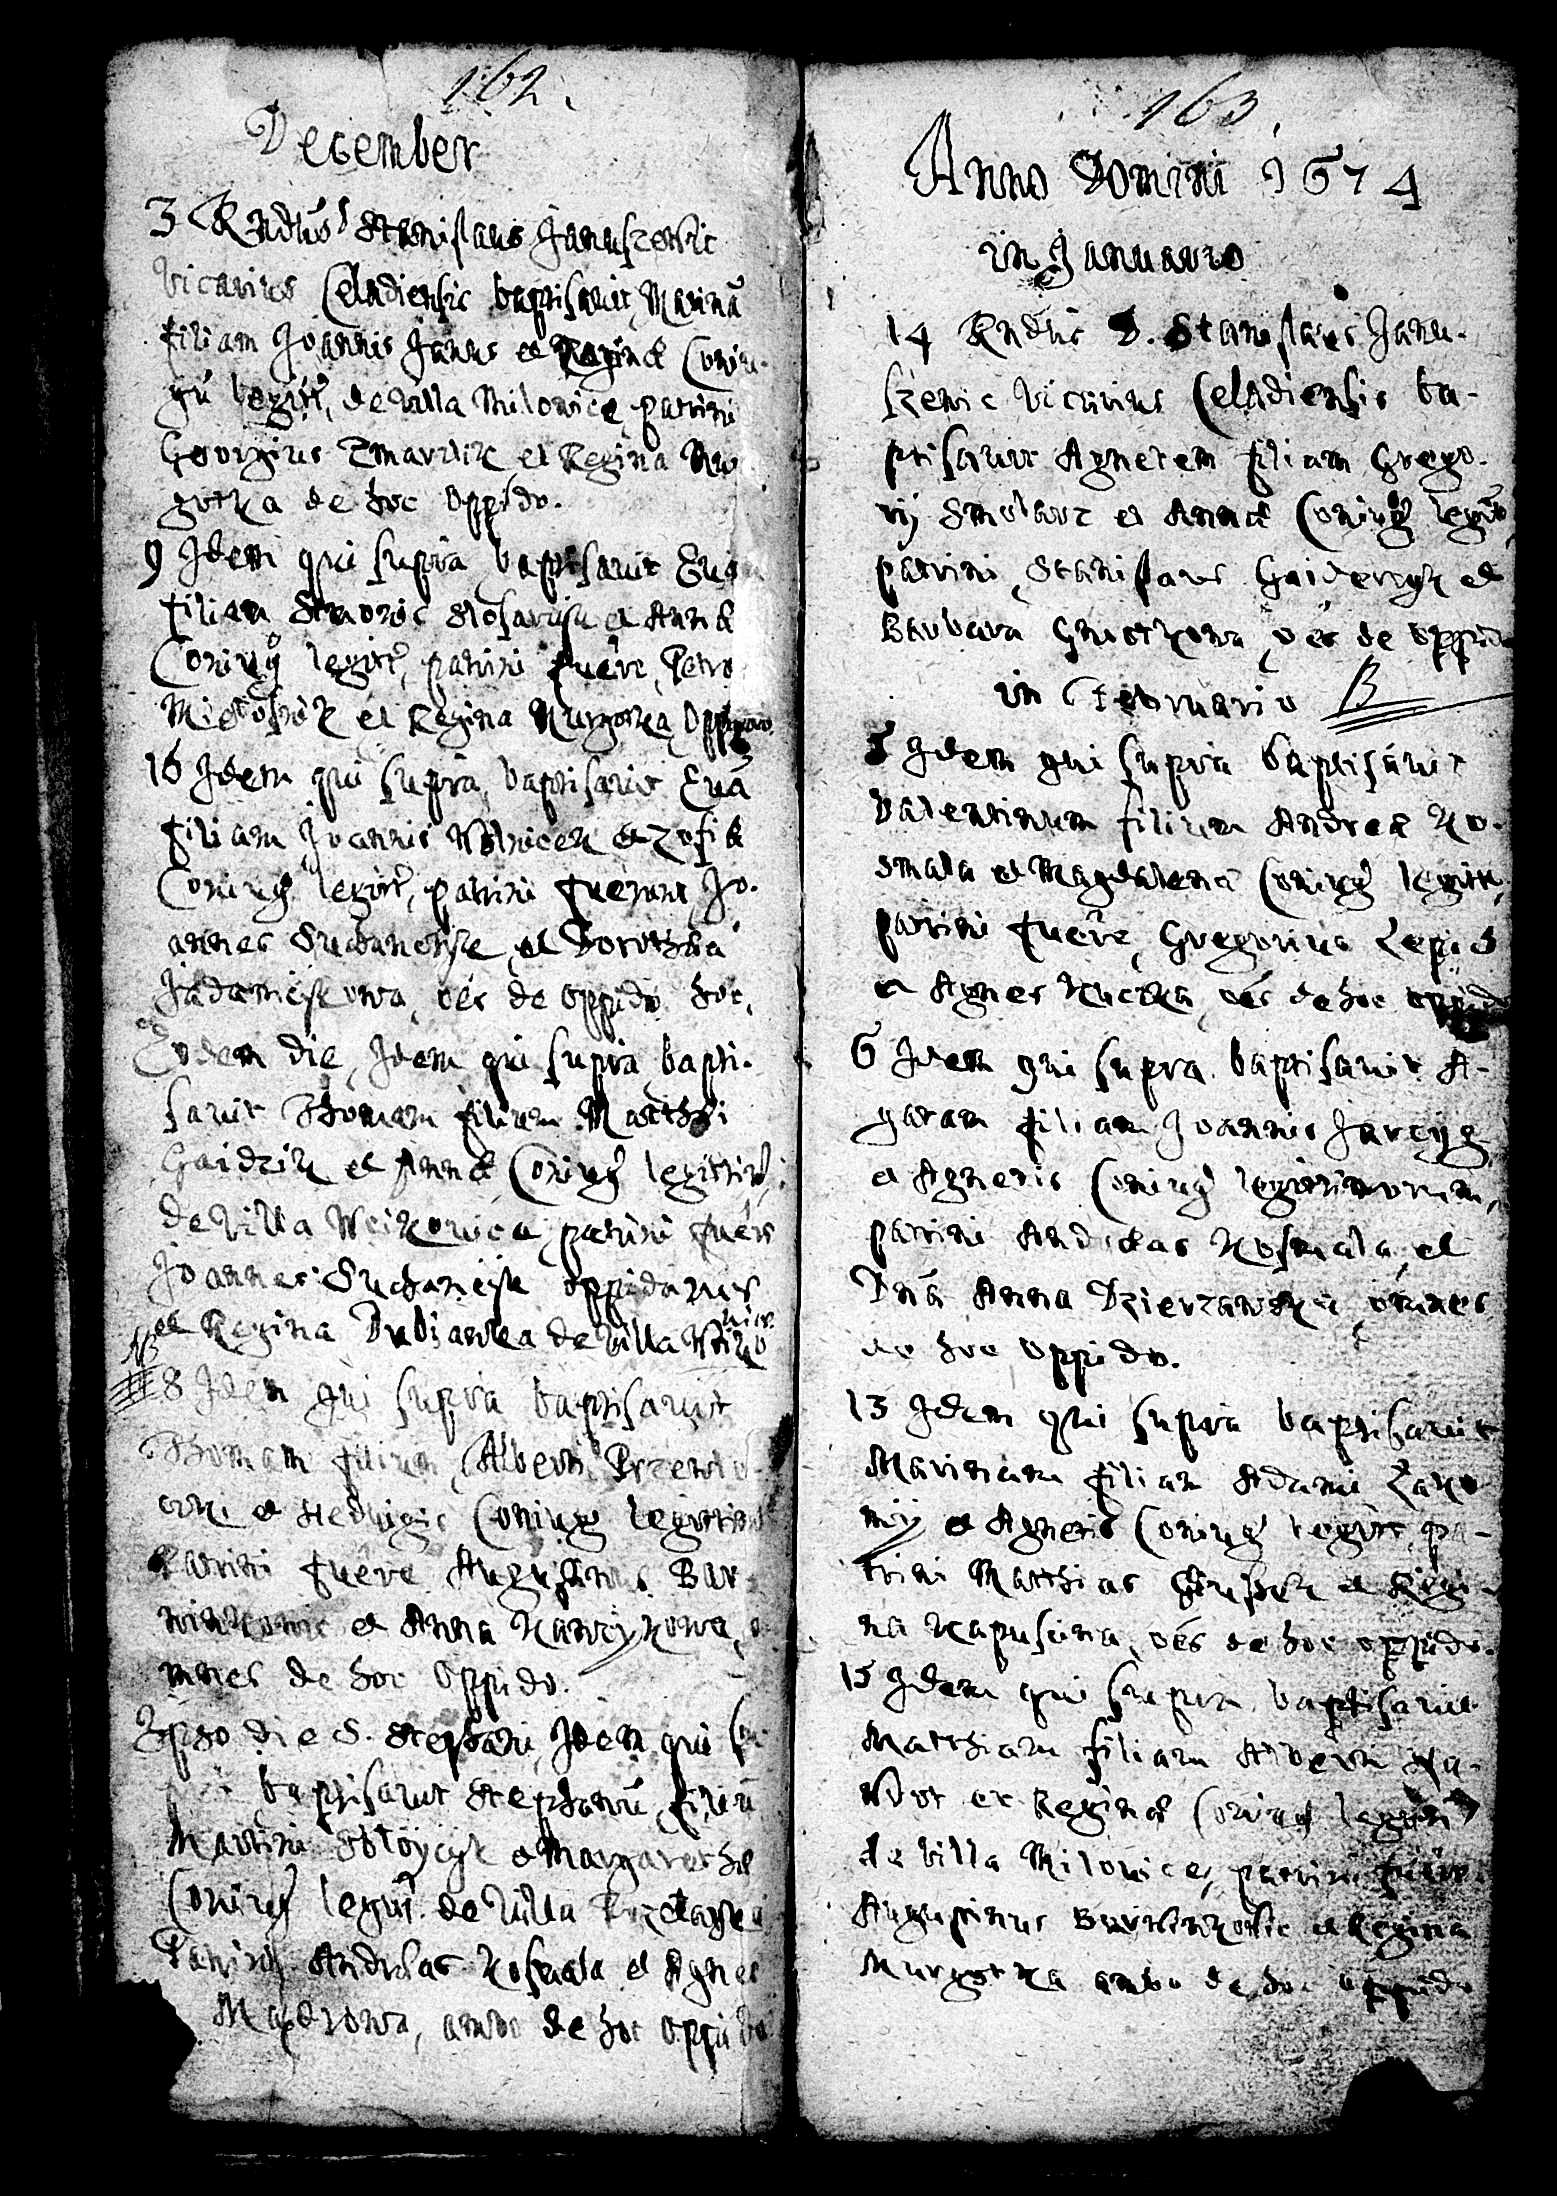 162.
December
3 Rndus Stanislaus Januszewic
Vicarius Celadiensis baptisavit Marinā
filiam Joannis Janus et Reginæ Coniu-
gū legitt, de Villa Milowice, patrini
Georgius Zmarzlik et Regina Mur
gotka de hoc oppido.
9 Idem qui supra baptisavit Evam
filiam Simonis Slosarisk et Annæ
Coniugū legitt, patrini fuere, Petro
et Regina Murgotka Oppidani
16 Idem qui supra baptisavit Evā
filiam Joannis Wolnicek et Zofiæ
Coniug legitt, patrini fuerunt, Jo-
annes Suchanecsk et Dorothea
Jadamieskowa, oēs de oppido hoc.
Eodem die, Idem qui supra bapti-
savit Thomam filium Matthei
Gaidzik et Annæ Coniug legittim,
de Villa Weikowice, patrini fuere
Joannes Suchanesk oppidanus
et Regina Dubianka de Villa Woiko
wice
NB
18 Idem qui supra baptisavit
Thomam filium Alberti Przewlo-
et Hedvigis Coniug legittim
Patrini fuere Augustinus Bur-
winkowic et Anna Kancykowa, o-
mnes de hoc oppido.
Ipso die S. Stephani, Idem qui su-
pra baptisavit Stephanū, filiū
Martini Stoycyk et Margarethæ
Coniug legitt. de Villa
Patrini Andreas Kosmala et Agnes
Mazdrowa, ambo de hoc oppido
163.
Anno Domini 1674
in Januario
14 Rndus D. Stanislaus Janu-
szewic Vicarius Celadiensis ba-
ptisavit Agnetem filiam Grego-
rij Smolarz et Annæ Coniug legitt,
patrini, Stanislaus Gaidecyk et
Barbara Gnietkowa, oēs de oppido
in Februario
B
5 Idem qui supra baptisavit
Valentinum filium Andreæ Ko-
smala et Magdalena Coniug legitt,
patrini fuere, Gregorius Lepies
et Agnes Kucska, oēs de hoc oppido
6 Idem qui supra baptisavit A-
gatam filiam Joannis Jarcyg
et Agnetis Coniug legittimorum,
patrini Andreas Kosmala, et
Dnā Anna Dzierzawska, omnes
de hoc oppido.
13 Idem qui supra baptisavit
Marinam filiam Adami Lako
mij et Agnetis Coniug legitt, pa-
trini Matthias et Regi-
na Kapusina, oēs de hoc oppido.
15 Idem qui supra baptisavit
Matthiam filium Alberti Na-
wrot et Reginæ Coniug legitti
de Villa Milowice, patrini fuere
Augustinus Burwinkowic et Regina
Murgotka ambo de hoc oppido